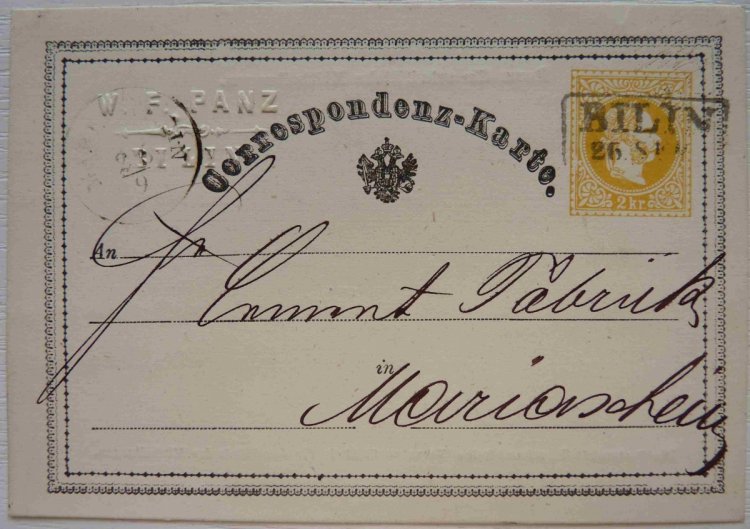 W. F. PANZ
BILIN
Correspondenz-Karte.
2 kr.
BILIN
26. SEP
An
Cement Fabrik
in
Mariaschein